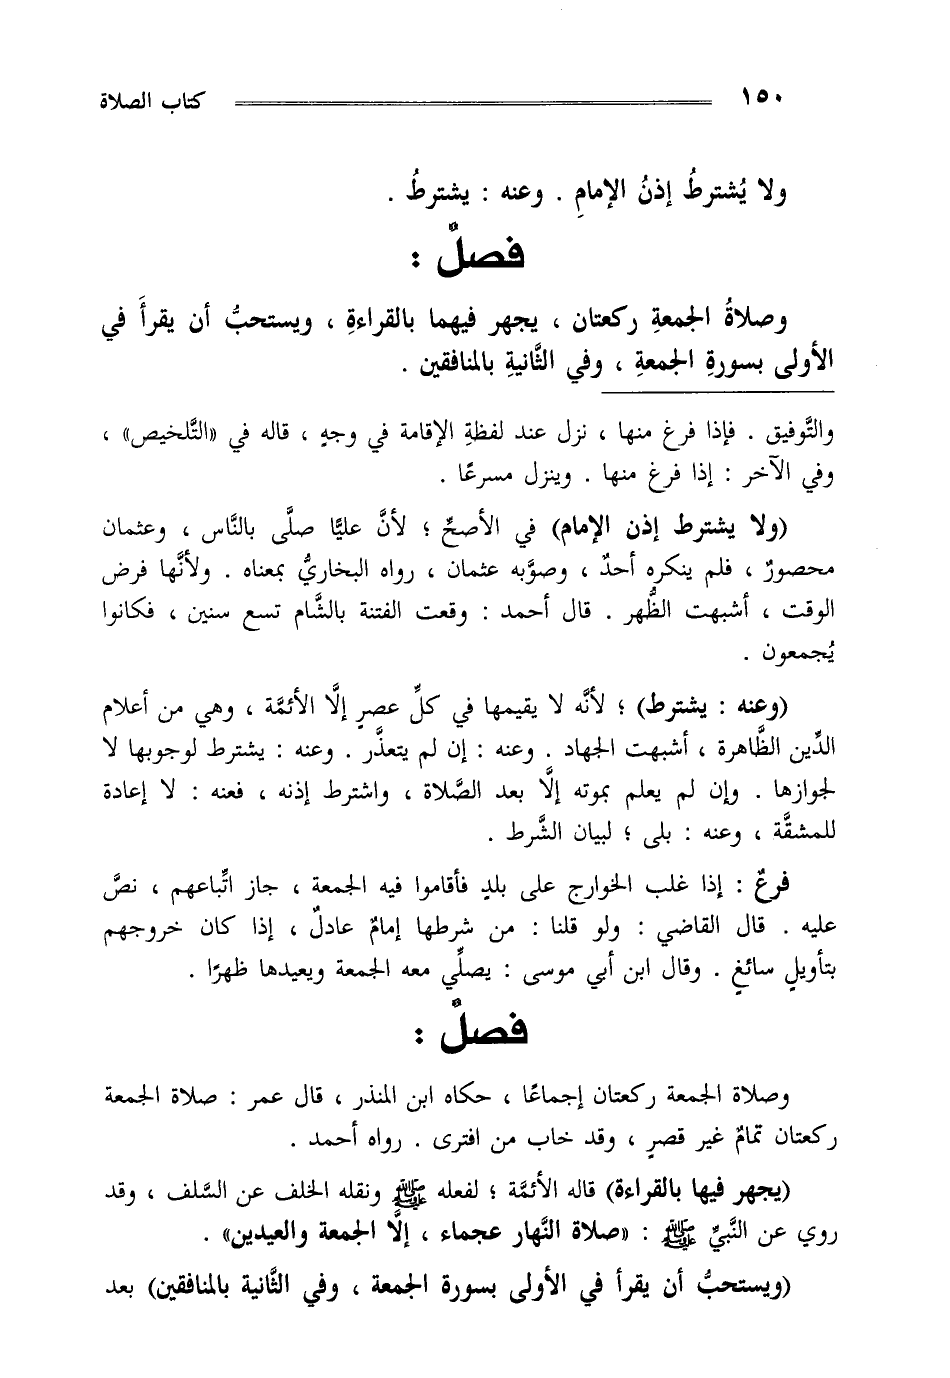 ١٥٠ كتاب الصلاة
ولا يُشترطُ إذنُ الإمامِ . وعنه : يشترطُ .
فصلٌ :
وصلاةُ الجمعةِ ركعتان ، يجهر فيهما بالقراءةِ ، ويستحبُّ أن يقرأَ في
الأولى بسورةِ الجمعةِ ، وفي الثَّانيةِ بالمنافقين .
والتَّوفيق . فإذا فرغ منها ، نزل عند لفظةِ الإقامة في وجهٍ ، قاله في «التَّلخيص» ،
وفي الآخر : إذا فرغ منها . وينزل مسرعًا .
(ولا يشترط إذن الإمام) في الأصحِّ ؛ لأنَّ عليًّا صلَّى بالنَّاس ، وعثمان
محصورٌ ، فلم ينكره أحدٌ ، وصوَّبه عثمان ، رواه البخاريُّ بمعناه . ولأنَّها فرض
الوقت ، أشبهت الظُّهر . قال أحمد : وقعت الفتنة بالشَّام تسع سنين ، فكانوا
يُجمعون .
(وعنه : يشترط) ؛ لأنَّه لا يقيمها في كلِّ عصرٍ إلَّا الأئمَّة ، وهي من أعلام
الدِّين الظَّاهرة ، أشبهت الجهاد . وعنه : إن لم يتعذَّر . وعنه : يشترط لوجوبها لا
لجوازها . وإن لم يعلم بموته إلَّا بعد الصَّلاة ، واشترط إذنه ، فعنه : لا إعادة
للمشقَّة ، وعنه : بلى ؛ لبيان الشَّرط .
فرعٌ : إذا غلب الخوارج على بلدٍ فأقاموا فيه الجمعة ، جاز اتِّباعهم ، نصَّ
عليه . قال القاضي : ولو قلنا : من شرطها إمامٌ عادلٌ ، إذا كان خروجهم
بتأويلٍ سائغٍ . وقال ابن أبي موسى : يصلِّي معه الجمعة ويعيدها ظهرًا .
فصلٌ :
وصلاة الجمعة ركعتان إجماعًا ، حكاه ابن المنذر ، قال عمر : صلاة الجمعة
ركعتان تمامٌ غير قصرٍ ، وقد خاب من افترى . رواه أحمد .
(يجهر فيها بالقراءة) قاله الأئمَّة ؛ لفعله ﷺ ونقله الخلف عن السَّلف ، وقد
روي عن النَّبيِّ ﷺ : «صلاة النَّهار عجماء ، إلَّا الجمعة والعيدين» .
(ويستحبُّ أن يقرأ في الأولى بسورة الجمعة ، وفي الثَّانية بالمنافقين) بعد